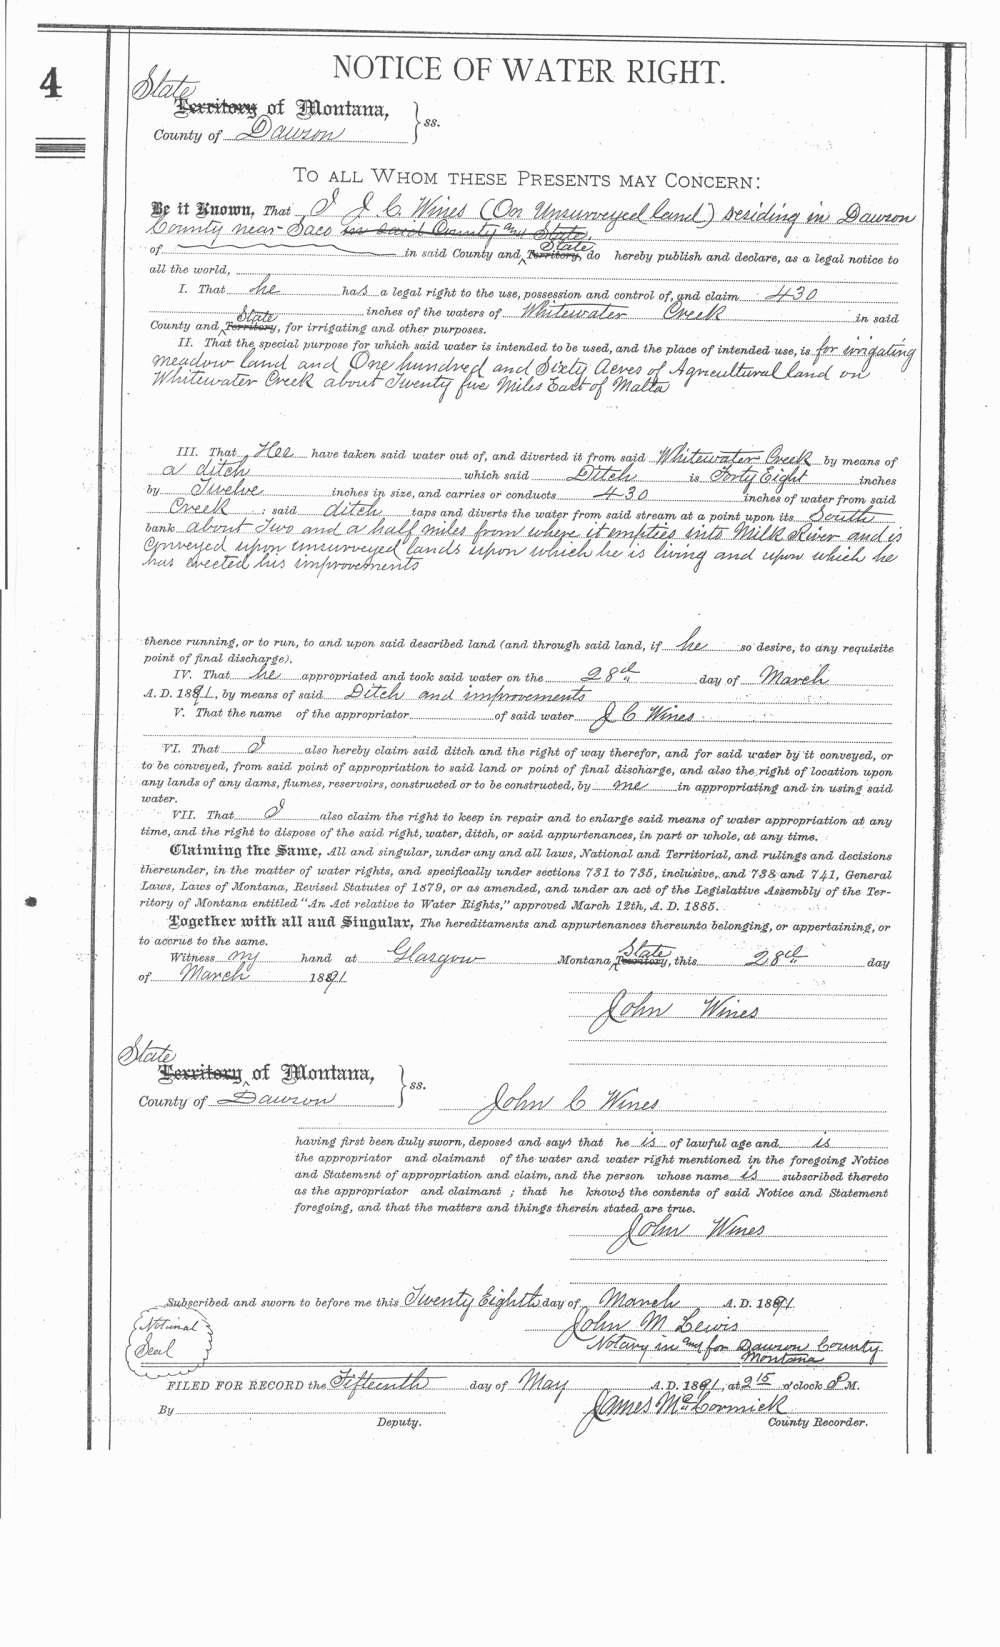 4
NOTICE OF WATER RIGHT.
State
Territory of Montana,
County of Dawson } ss.
TO ALL WHOM THESE PRESENTS MAY CONCERN:
Be it Known, That I J. C. Wines (On Unsurveyed land) residing in Dawson
County near Saco in said County and State.
of in said County and State Territory, do hereby publish and declare, as a legal notice to
all the world,
I. That he has a legal right to the use, possession and control of, and claim 430
inches of the waters of Whitewater Creek in said
County and State Territory, for irrigating and other purposes.
II. That the special purpose for which said water is intended to be used, and the place of intended use, is for irrigating
meadow land and One hundred and Sixty Acres of Agricultural land on
Whitewater Creek about Twenty five Miles East of Malta
III. That Hee have taken said water out of, and diverted it from said Whitewater Creek by means of
a ditch which said Ditch is Forty Eight inches
by Twelve inches in size, and carries or conducts 430 inches of water from said
Creek ; said ditch taps and diverts the water from said stream at a point upon its South
bank about Two and a half miles from where it empties into Milk River and is
Conveyed upon unsurveyed lands upon which he is living and upon which he
has erected his improvements
thence running, or to run, to and upon said described land (and through said land, if he so desire, to any requisite
point of final discharge).
IV. That he appropriated and took said water on the 28th day of March
A. D. 1891, by means of said Ditch and improvements
V. That the name of the appropriator of said water J C Wines
VI. That I also hereby claim said ditch and the right of way therefor, and for said water by it conveyed, or
to be conveyed, from said point of appropriation to said land or point of final discharge, and also the right of location upon
any lands of any dams, flumes, reservoirs, constructed or to be constructed, by me in appropriating and in using said
water.
VII. That I also claim the right to keep in repair and to enlarge said means of water appropriation at any
time, and the right to dispose of the said right, water, ditch, or said appurtenances, in part or whole, at any time.
Claiming the Same, All and singular, under any and all laws, National and Territorial, and rulings and decisions
thereunder, in the matter of water rights, and specifically under sections 731 to 735, inclusive, and 738 and 741, General
Laws, Laws of Montana, Revised Statutes of 1879, or as amended, and under an act of the Legislative Assembly of the Ter-
ritory of Montana entitled "An Act relative to Water Rights," approved March 12th, A. D. 1885.
Together with all and Singular, The hereditaments and appurtenances thereunto belonging, or appertaining, or
to accrue to the same.
Witness my hand at Glasgow Montana State Territory, this 28th day
of March 1891
John Wines
State
Territory of Montana,
County of Dawson } ss.
John C Wines
having first been duly sworn, deposes and says that he is of lawful age and is
the appropriator and claimant of the water and water right mentioned in the foregoing Notice
and Statement of appropriation and claim, and the person whose name is subscribed thereto
as the appropriator and claimant ; that he knows the contents of said Notice and Statement
foregoing, and that the matters and things therein stated are true.
John Wines
Subscribed and sworn to before me this Twenty Eighth day of March A. D. 1891
Notarial
Seal
John M Lewis
Notary in and for Dawson County
Montana
FILED FOR RECORD the Fifteenth day of May A. D. 1891, at 2 15 o'clock P M.
By James McCormick
Deputy. County Recorder.